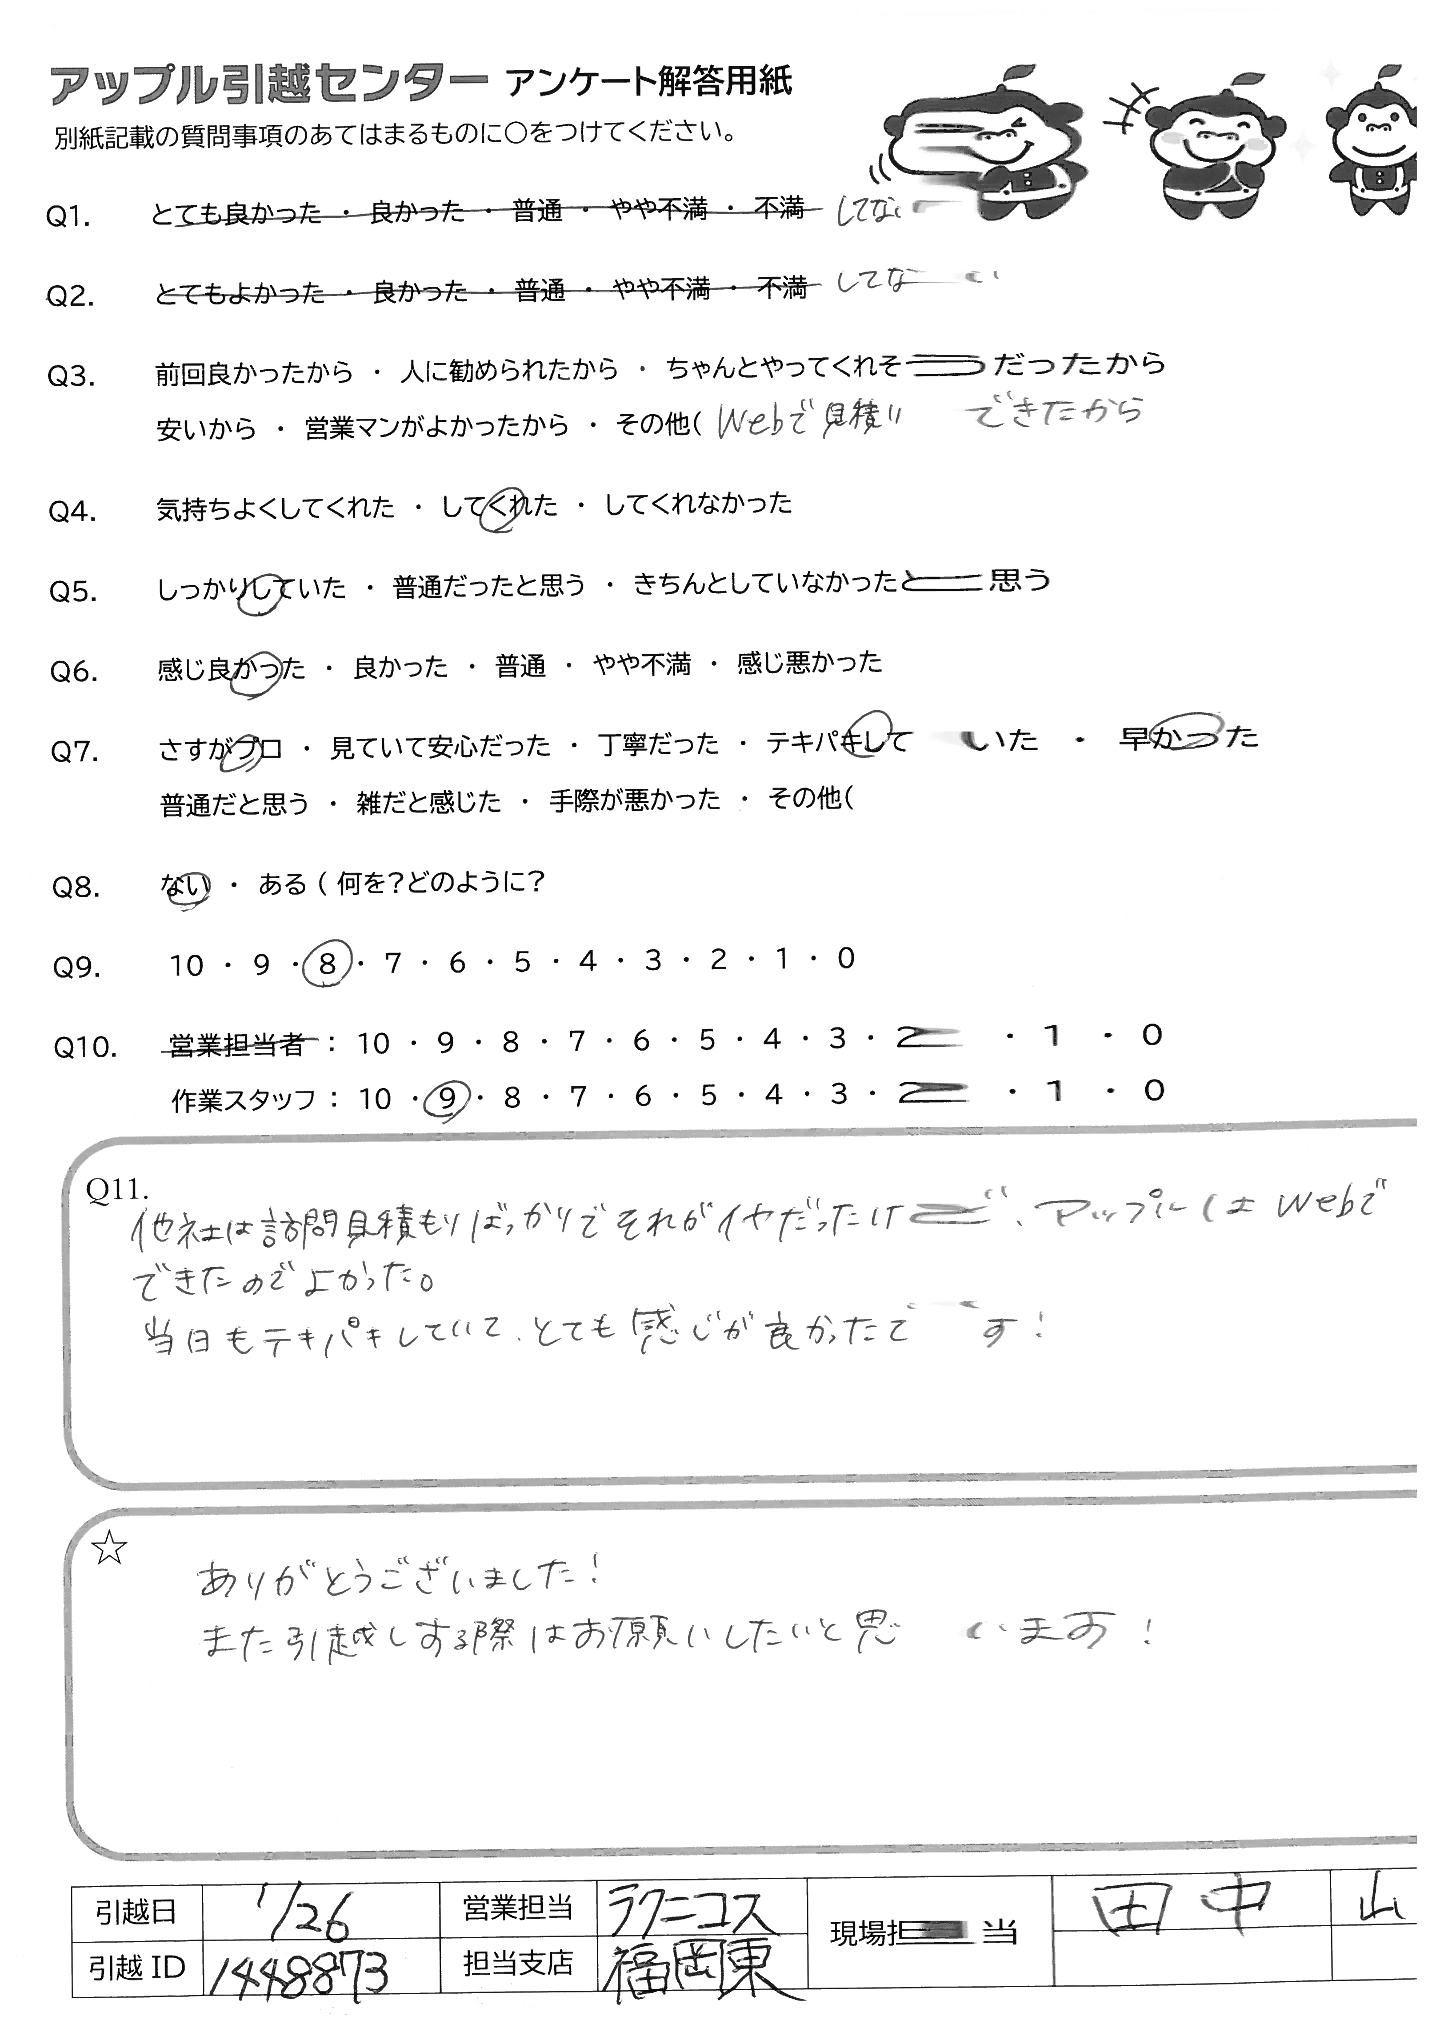 アップル引越センター アンケート解答用紙
別紙記載の質問事項のあてはまるものに○をつけてください。
Q1. とても良かった ・ 良かった ・ 普通 ・ やや不満 ・ 不満 してな
Q2. とてもよかった ・ 良かった ・ 普通 ・ やや不満 ・ 不満 してない
Q3. 前回良かったから ・ 人に勧められたから ・ ちゃんとやってくれそうだったから
安いから ・ 営業マンがよかったから ・ その他( Webで見積りできたから
Q4. 気持ちよくしてくれた ・ してくれた ・ してくれなかった
Q5. しっかりしていた ・ 普通だったと思う ・ きちんとしていなかったと思う
Q6. 感じ良かった ・ 良かった ・ 普通 ・ やや不満 ・ 感じ悪かった
Q7. さすがプロ ・ 見ていて安心だった ・ 丁寧だった ・ テキパキしていた ・ 早かった
普通だと思う ・ 雑だと感じた ・ 手際が悪かった ・ その他(
Q8. ない ・ ある ( 何を?どのように?
Q9. 10 ・ 9 ・ 8 ・ 7 ・ 6 ・ 5 ・ 4 ・ 3 ・ 2 ・ 1 ・ 0
Q10. 営業担当者 : 10 ・ 9 ・ 8 ・ 7 ・ 6 ・ 5 ・ 4 ・ 3 ・ 2 ・ 1 ・ 0
作業スタッフ : 10 ・ 9 ・ 8 ・ 7 ・ 6 ・ 5 ・ 4 ・ 3 ・ 2 ・ 1 ・ 0
Q11.
他社は訪問見積もりばっかりでそれがイヤだったけど、アップルはWebで
できたのでよかった。
当日もテキパキしていて、とても感じが良かったです!
☆
ありがとうございました!
また引越しする際はお願いしたいと思います!
引越日 1/26 営業担当 ラクニコス 現場担当 田中 山
引越ID 1448873 担当支店 福岡東